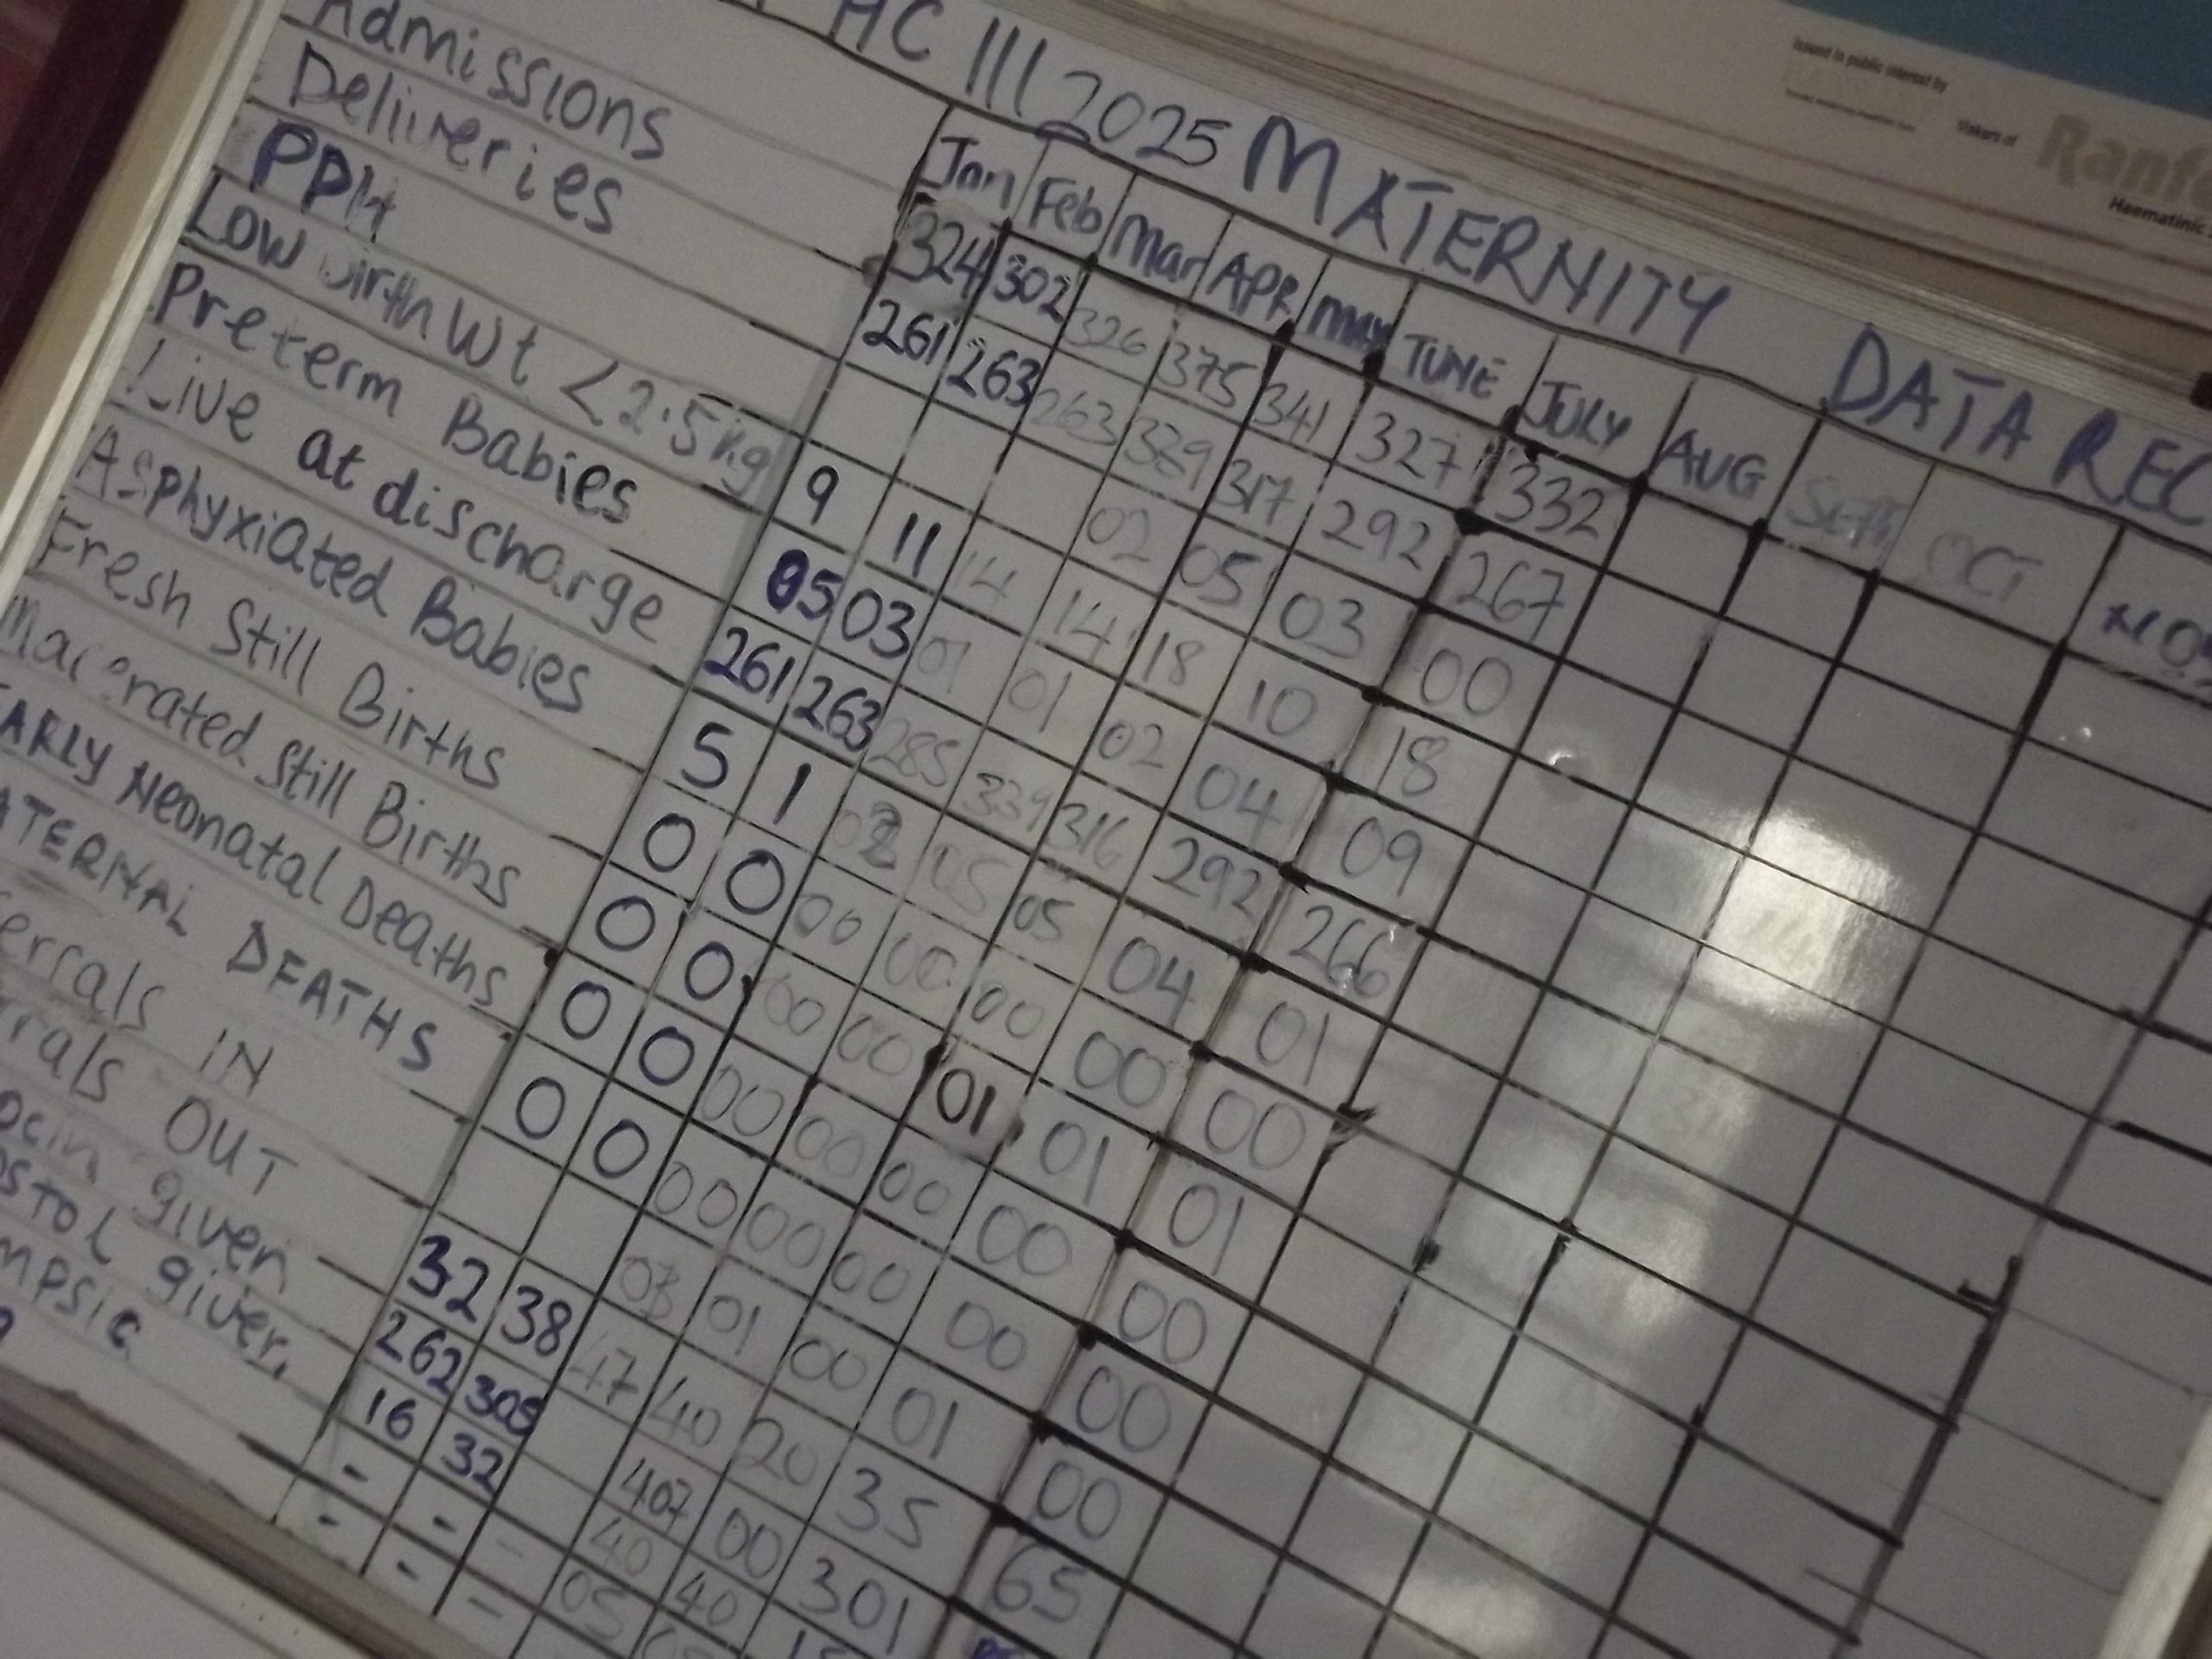 HC III 2025 MATERNITY DATA REC
Jan Feb Mar APR MAY JUNE JULY AUG SEPT OCT NOV
Admissions 324 302 326 375 341 327 332
Deliveries 261 263 263 339 317 292 267
PPH 02 05 03 00
Low birth Wt <2.5kg 9 11 14 14 18 10 18
Preterm Babies 05 03 01 01 02 04 09
Live at discharge 261 263 285 339 316 292 266
Asphyxiated Babies 5 1 02 05 05 04 01
Fresh Still Births 0 0 00 00 00 00 00
Macerated Still Births 0 0 00 00 01 01 01
EARLY Neonatal Deaths 0 0 00 00 00 00 00
MATERNAL DEATHS 0 0 00 00 00 00 00
errals IN 03 01 00 01 00
rrals OUT 32 38 47 40 20 35 65
ocin given 262 305 407 00 301
ostol given 16 32 - 40 40
mpsia - - - 05
- -
Issued in public interest by
Makers of
Ranfe
Haematinic